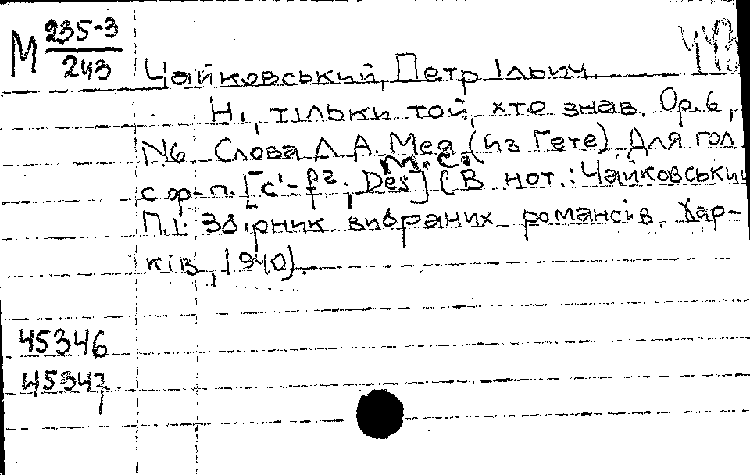 М 235-3
243
443
Чайковський, Петр Ільич.
Ні, тільки той, хто знав. Ор. 6,
№6. Слова Л. А. Мея (из Гете). Для гол.
с ф-п. [c¹-f²; Des] (В нот.: Чайковський
П.І. Збірник вибраних романсів. Хар-
ків, 1940).
45346
45347